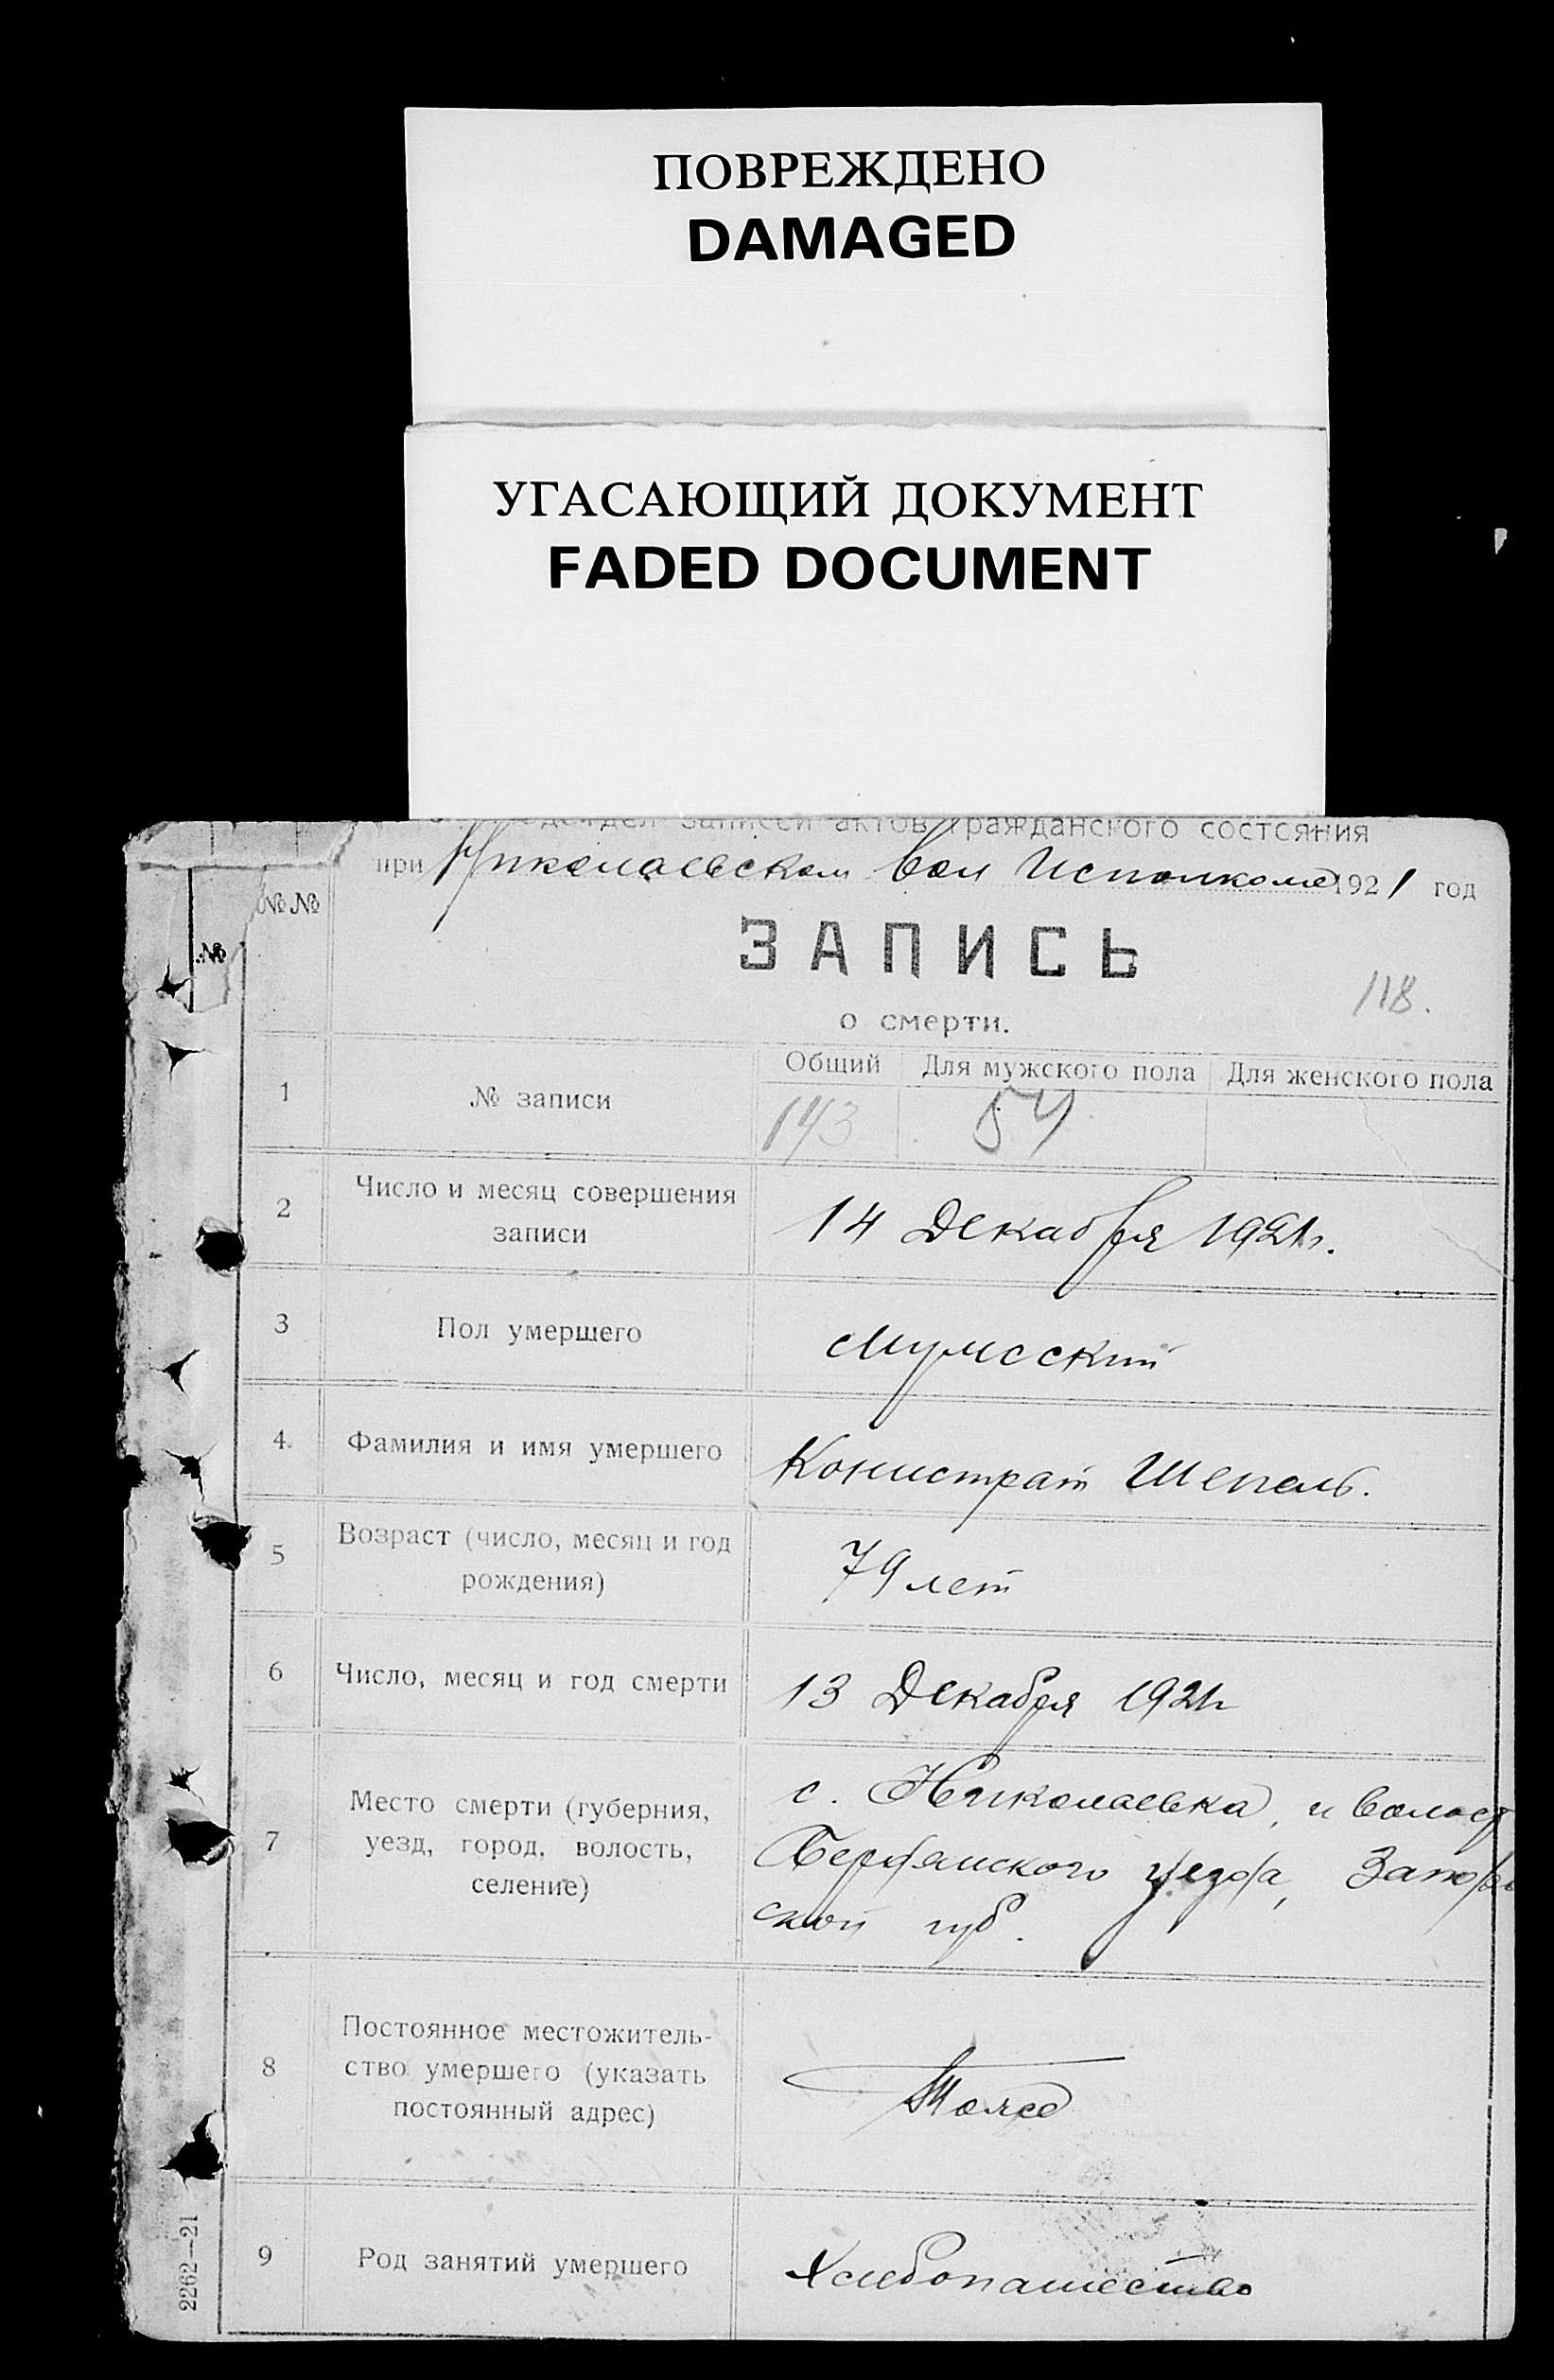 ПОВРЕЖДЕНО
DAMAGED
УГАСАЮЩИЙ ДОКУМЕНТ
FADED DOCUMENT
записей актов гражданского состояния
при Николаевском Вол Исполкоме 1921 год
№№
№
ЗАПИСЬ
118.
о смерти.
Общий Для мужского пола Для женского пола
1 № записи 143 54
2 Число и месяц совершения
записи 14 Декабря 1921г.
3 Пол умершего Мужской
4. Фамилия и имя умершего Шепель.
5 Возраст (число, месяц и год
рождения) 79 лет
6 Число, месяц и год смерти 13 Декабря 1921г
7 Место смерти (губерния,
уезд, город, волость,
селение)
с. Николаевка, и волост
Бердянского уезда, Запорж
ской губ.
8 Постоянное местожитель-
ство умершего (указать
постоянный адрес)
Тоже
9 Род занятий умершего Хлебопашество
2262—21